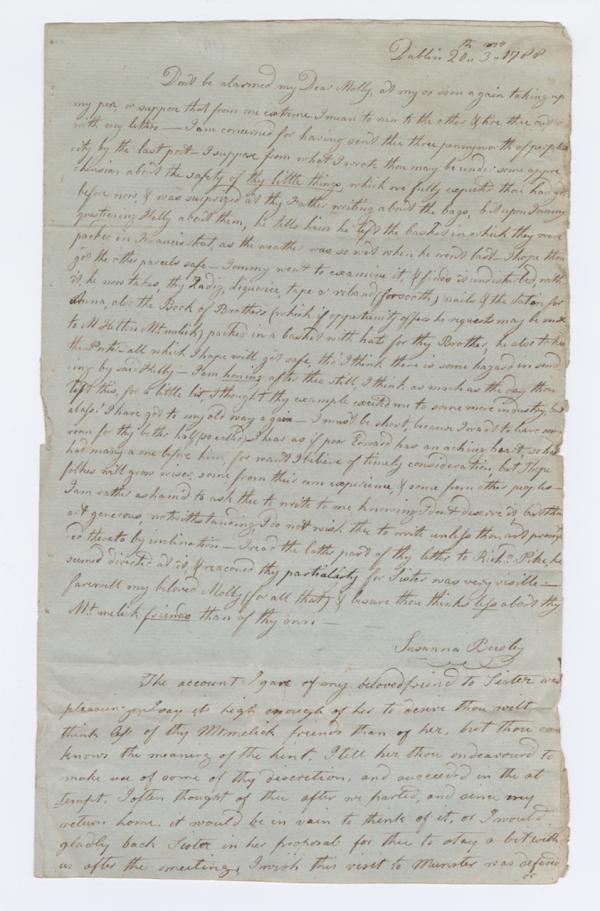 Dublin 20th 3mo 1788
Don't be alarmed my Dear Molly, at my so soon again taking up
my pen, or suppose that from one extreme I mean to run to the other & tire thee out
with my letters — I am concerned for having sent thee three pennyworth of perplex
city by the last post — I suppose from what I wrote thou may be under some appre
hension about the safety of thy little things, which we fully expected thou had got
before now, & was surprized at thy Father writing about the bags, but upon Tommy
questioning Helly about them, he tells him he left the basket in which they were
packed in Francis Street, as the weather was so wet when he went last — I hope thou
got the other parcels safe — Tommy went to examine it, & finds it undisturbed with
it, he now takes, thy Zadig, liquorice, tape or riband (forsooth) nails & the Satin for
Anna, also the Book of Brothers (which if opportunity offers he requests may be sent
to M Hetten Mt. melick) packed in a basket with hats for thy Brother, he also takes
the Porter — all which I hope will get safe, tho' I think there is some hazard in send
ing by said Helly — I am honing after thee still, I think as much as the day thou
left this, for a little bit, I thought thy example excited me to some more industry, but
alass! I have got to my old way again — I must be short, because I want to leave some
room for thy better half
vean as if poor Edward has an aching heart, so has
had many a one before him, for want I believe of timely consideration, but I hope
folkes will grow wiser, some from their own experience, & some from other peoples —
I am rather asham'd to ask thee to write to me knowing I don't deserve it, but thou
art generous, notwithstanding I do not wish thee to write unless thou art promp
ted thereto by inclination — I read the latter part of thy letter to Richd. Pike, he
seemed diverted at it, & reaconed thy partiality for Sister was very visible —
farewell my beloved Molly (for all that) & besure thou thinks less about thy
Mt. melick friends than of thy own —
Susanna Beesly
The account I gave of my beloved friend to Sister was
pleasing, I say it high enough of her to desire thou wilt
think less of thy Mtmelick friends than of her, but thou can
knows the meaning of the hint. I tell her thou endeavourd to
make use of some of thy discretion, and succeeded in the at
tempt. I often thought of thee after we parted, and since my
return home. it would be in vain to think of it, or I would
gladly back Sister in her proposal for thee to stay a bit with
us after the meeting, I wish this visit to Munster was defered
or